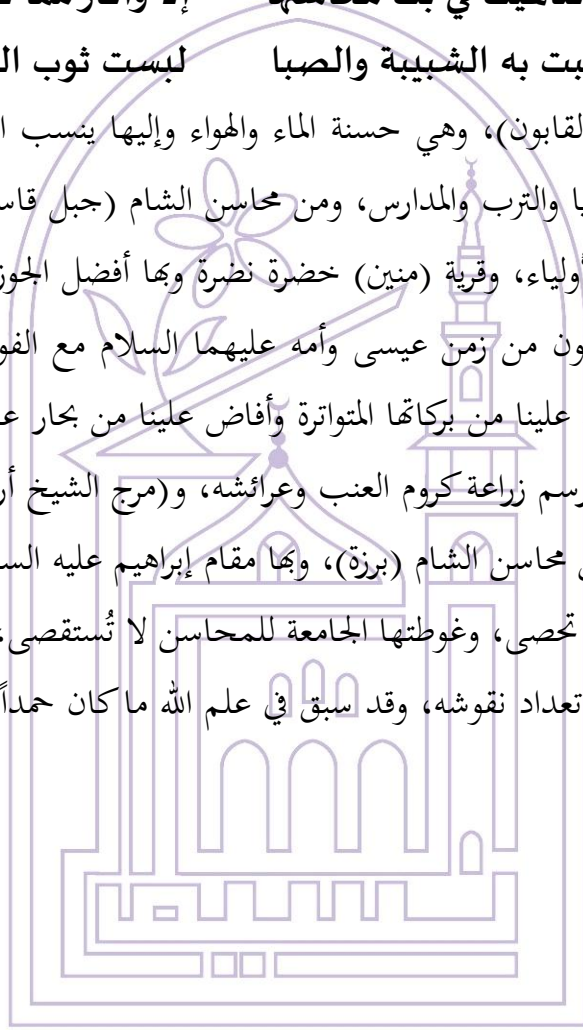 في بث محاسنها إلا وأكثر مما
ـبت به الشبيبة والصبا لبست ثوب الـ
لقابون)، وهي حسنة الماء والهواء وإليها ينسب ا
ـا والترب والمدارس، ومن محاسن الشام (جبل قاسـ
أولياء، وقرية (منين) خضرة نضرة وبها أفضل الجوز
ـون من زمن عيسى وأمه عليهما السلام مع الفو
علينا من بركاتها المتواترة وأفاض علينا من بحار عـ
رسم زراعة كروم العنب وعرائشه، و(مرج الشيخ أر
ـن محاسن الشام (برزة)، وبها مقام إبراهيم عليه السـ
تحصى، وغوطتها الجامعة للمحاسن لا تُستقصى،
تعداد نقوشه، وقد سبق في علم الله ما كان حمداً